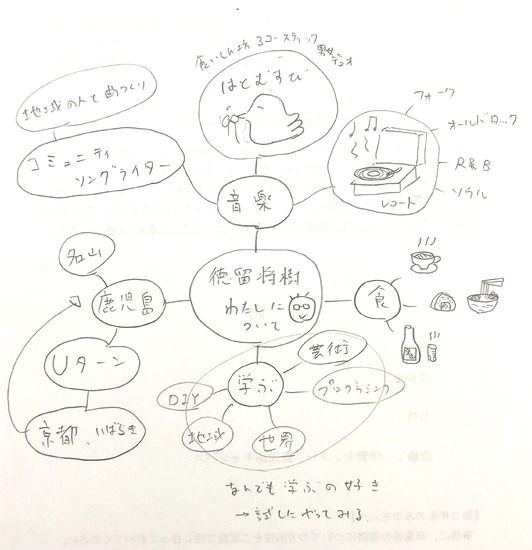 食いしん坊 アコースティック
男女デュオ
はとむすび
地域の人と曲づくり
コミュニティ
ソングライター
フォーク
オールドロック
R&B
ソウル
レコード
音楽
名山
鹿児島
徳留将樹
わたしに
ついて
食
Uターン
京都、いばらき
学ぶ
芸術
プログラミング
DIY
地域
世界
なんでも学ぶの好き
→試しにやってみる